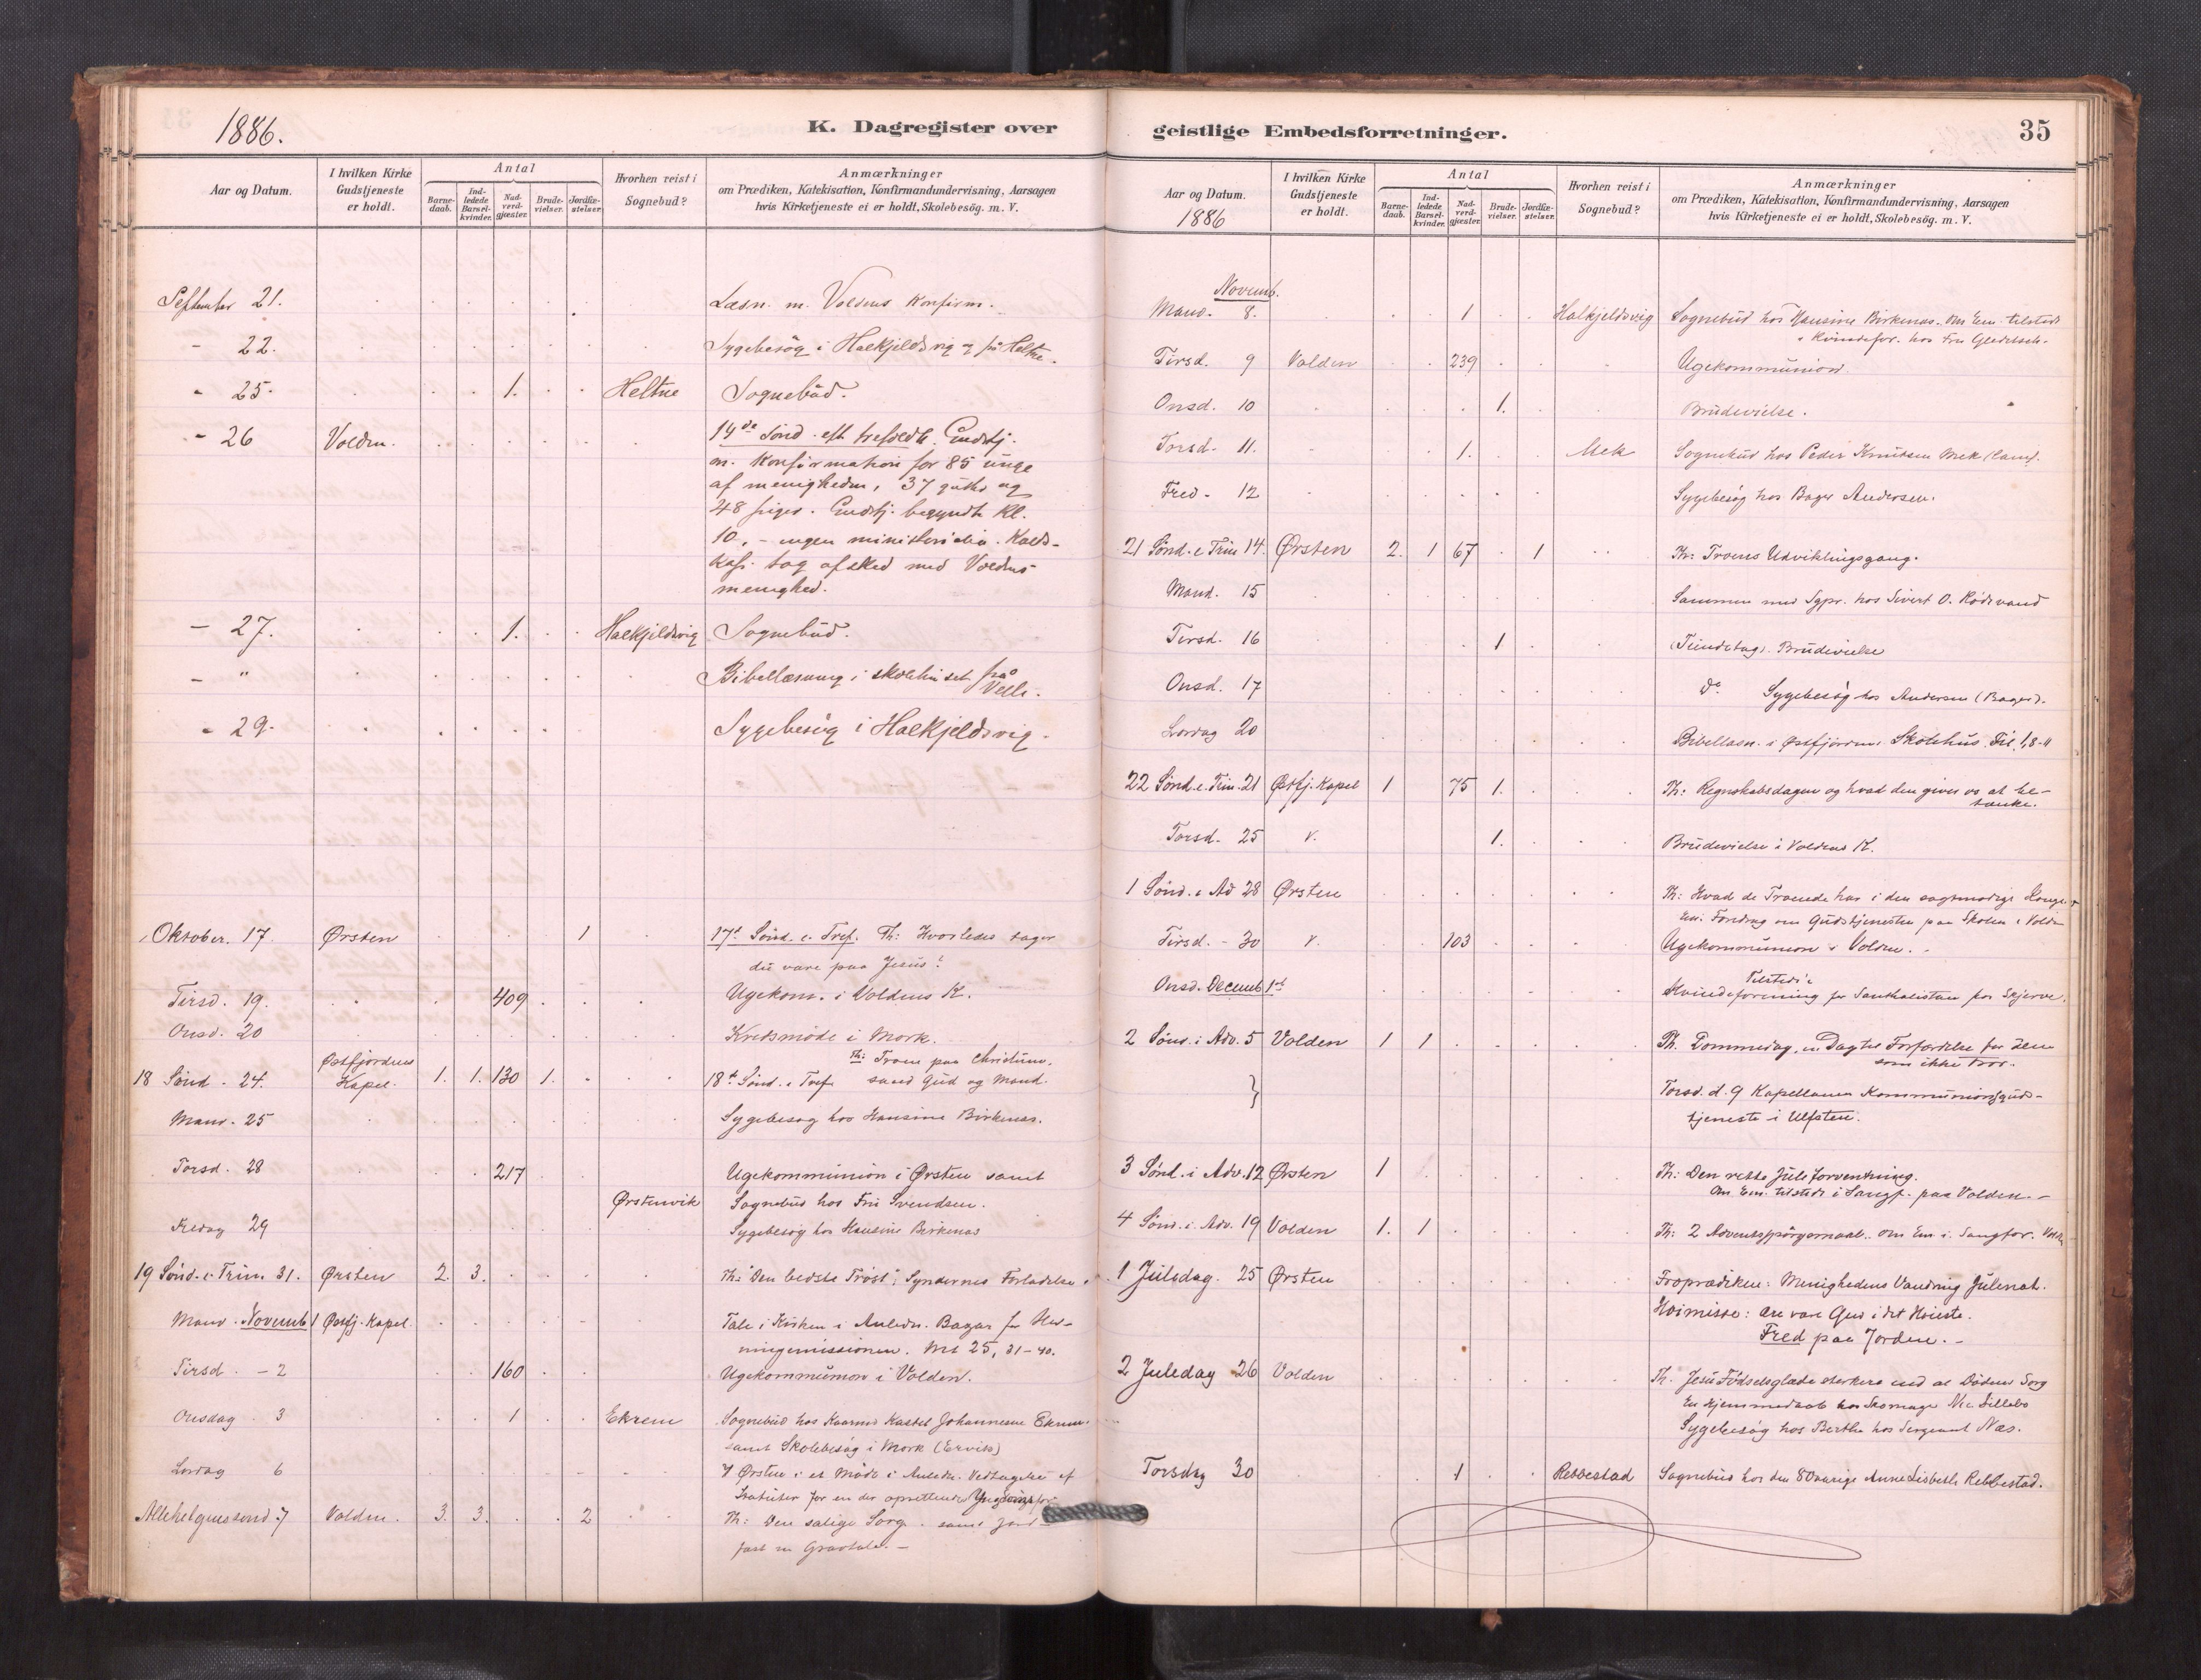 1886.
K. Dagregister over
Aar og Datum.
I hvilken Kirke Gudstjeneste er holdt.
Antal
Barne-daab.
Ind-ledede Barsel-kvinder.
Nad-verd-gjæster.
Brude-vielser.
Jordfæ-stelser.
Hvorhen reist i Sognebud?
Anmærkninger
om Prædiken, Katekisation, Konfirmandundervisning, Aarsagen
hvis Kirketjeneste ei er holdt, Skolebesög. m. V.
September 21. Læsn. m. Voldens Konfirm.
- 22. Sygebesög i Halkjeldsvig og på Heltne.
- 25. 1. Heltne Sognebud.
- 26 Volden. 14de Sønd. eft trefoldh. Gudstj.
m. Konfirmation for 85 unge
af menigheden, 37 gutter og
48 piger. Gudstj. begyndte Kl.
10. - ingen ministerialia.
tog afsked med Voldens
menighed.
- 27. 1. Halkjeldsvig Sognebud.
- " Bibellæsning i skolehuset på
Velle.
- 29. Sygebesög i Halkjeldsvig.
Oktober. 17 Ørsten 1 17d Sønd. e. Tref. Th: Hvorledes tager
du vare paa Jesus?
Tirsd. 19. 409 Ugekom. i Voldens K.
Onsd. 20 Kredsmöde i Mork.
Th: Troen paa Christum,
18 Sønd. 24. Østfjordens Kapel. 1. 1. 130 1. 18d Sønd. e Tref sand Gud og Mand.
Mand. 25 Sygebesøg hos Hansine Birkenes.
Torsd. 28 217 Ugekommunion i Ørsten samt
Ørstenvik Sognebud hos Fru Svendsen.
Fredag 29 Sygebesøg hos Hansine Birkenes
19 Sønd. e. Trin. 31. Ørsten 2. 3. Th: "Den bedste Trøst", Syndernes Forladelse.
Mand. Novemb 1 Østfj. Kapel. Tale i Kirken i Anledn. Bazar for Hed-
ningemissionen. Mt 25, 31-40.
Tirsd. - 2 160 Ugekommunion i Volden.
Onsdag 3 1 Ekrem Sognebud hos Johannesen Ekrem.
samt Skolebesøg i Mork
Lørdag 6 I Ørsten i et Møde i Anledn. Vedtagelse af
Statuter for en der oprettende Ynglingefor
Allehelgenssønd. 7 Volden. 3. 3. 2 Th: Den salige Sorg. samt Jord-
fæst m Gravtale. -
geistlige Embedsforretninger.
35
Aar og Datum.
1886
I hvilken Kirke Gudstjeneste er holdt.
Antal
Barne-daab.
Ind-ledede Barsel-kvinder.
Nad-verd-gjæster.
Brude-vielser.
Jordfæ-stelser.
Hvorhen reist i Sognebud?
Anmærkninger
om Prædiken, Katekisation, Konfirmandundervisning, Aarsagen
hvis Kirketjeneste ei er holdt, Skolebesög. m. V.
Novemb.
Mand. 8. 1 Halkjeldsvig Sognebud hos Hansine Birkenes. Om Em. tilstede
i Kvindefor. hos Fru
Tirsd. 9 Volden 239 Ugekommunion
Onsd. 10 1. Brudevielse.
Torsd. 11. 1. Mek Sognebud hos Peder Knutsen Mek
Fred. 12 Sygebesøg hos Bager Andersen.
21 Sønd. e Trin 14. Ørsten 2. 1 67 1 Th: Troens Udviklingsgang.
Mand. 15 Sammen med Sgpr. hos Sivert O. Rødsvand
Tirsd. 16 1 (Tiendetag). Brudevielse
Onsd. 17 do Sygebesøg hos Andersen (Bager).
Lørdag 20 Bibellæsn. i Østfjordens Skolehus. Fil. 1,8-11
22 Sønd. e. Trin. 21 Østfj. Kapel 1 75 1. Th: Regnskabsdagen og hvad den giver os at be-
tænke.
Torsd. 25 V. 1. Brudevielse i Voldens K.
1 Sønd. i Ad 28 Ørsten Th: Hvad de Troende har i den sagtmodige Konge
Em: Foredrag om Gudstjenesten paa Skolen i Volden
Tirsd. - 30 V. 103 Ugekommunion i Volden.
Onsd. Decemb 1st Tilstede i
Kvindeforening for Santhalistan hos Skjerve.
2 Sønd. i Adv. 5 Volden 1 1 Th. Dommedag, en Dag til Forfærdelse for den
som ikke tror.
Torsd. d. 9 Kapellanen Kommunionsguds-
tjeneste i Ulfsten.
3 Sønd. i Adv. 12 Ørsten 1 Th: Den rette Juleforventning.
Om Em. tilstede i Sangf. paa Volden. -
4 Sønd. i. Adv. 19 Volden 1. 1 Th: 2 Adventsspørgsmaal. Om Em i Sangfor.
1 Juledag. 25 Ørsten Froprædiken: Menighedens Vandring Julenat.
Høimisse: Ære være Gud i det Høieste.
Fred paa Jorden. -
2 Juledag 26 Volden Th. Jesu Fødselsglæde stærkere end al Dødens Sorg
En Hjemmedaab hos Skomager
Sygebesøg hos Berthe hos Sergeant Næs.
Torsdag 30 1 Rebbestad Sognebud hos den 80aarige Anne Lisbeth Rebbestad.